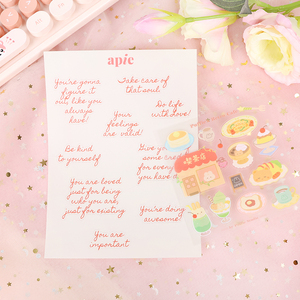 apic
You're gonna
figure it
out, like you
always
have!
Take care of
that soul
Do life
with love!
Your
feelings
are valid!
Be kind
to yourself
Give you
some cred
for every
you have d
You are loved
just for being
who you are,
just for existing
You're doing
awesome!
You are
important